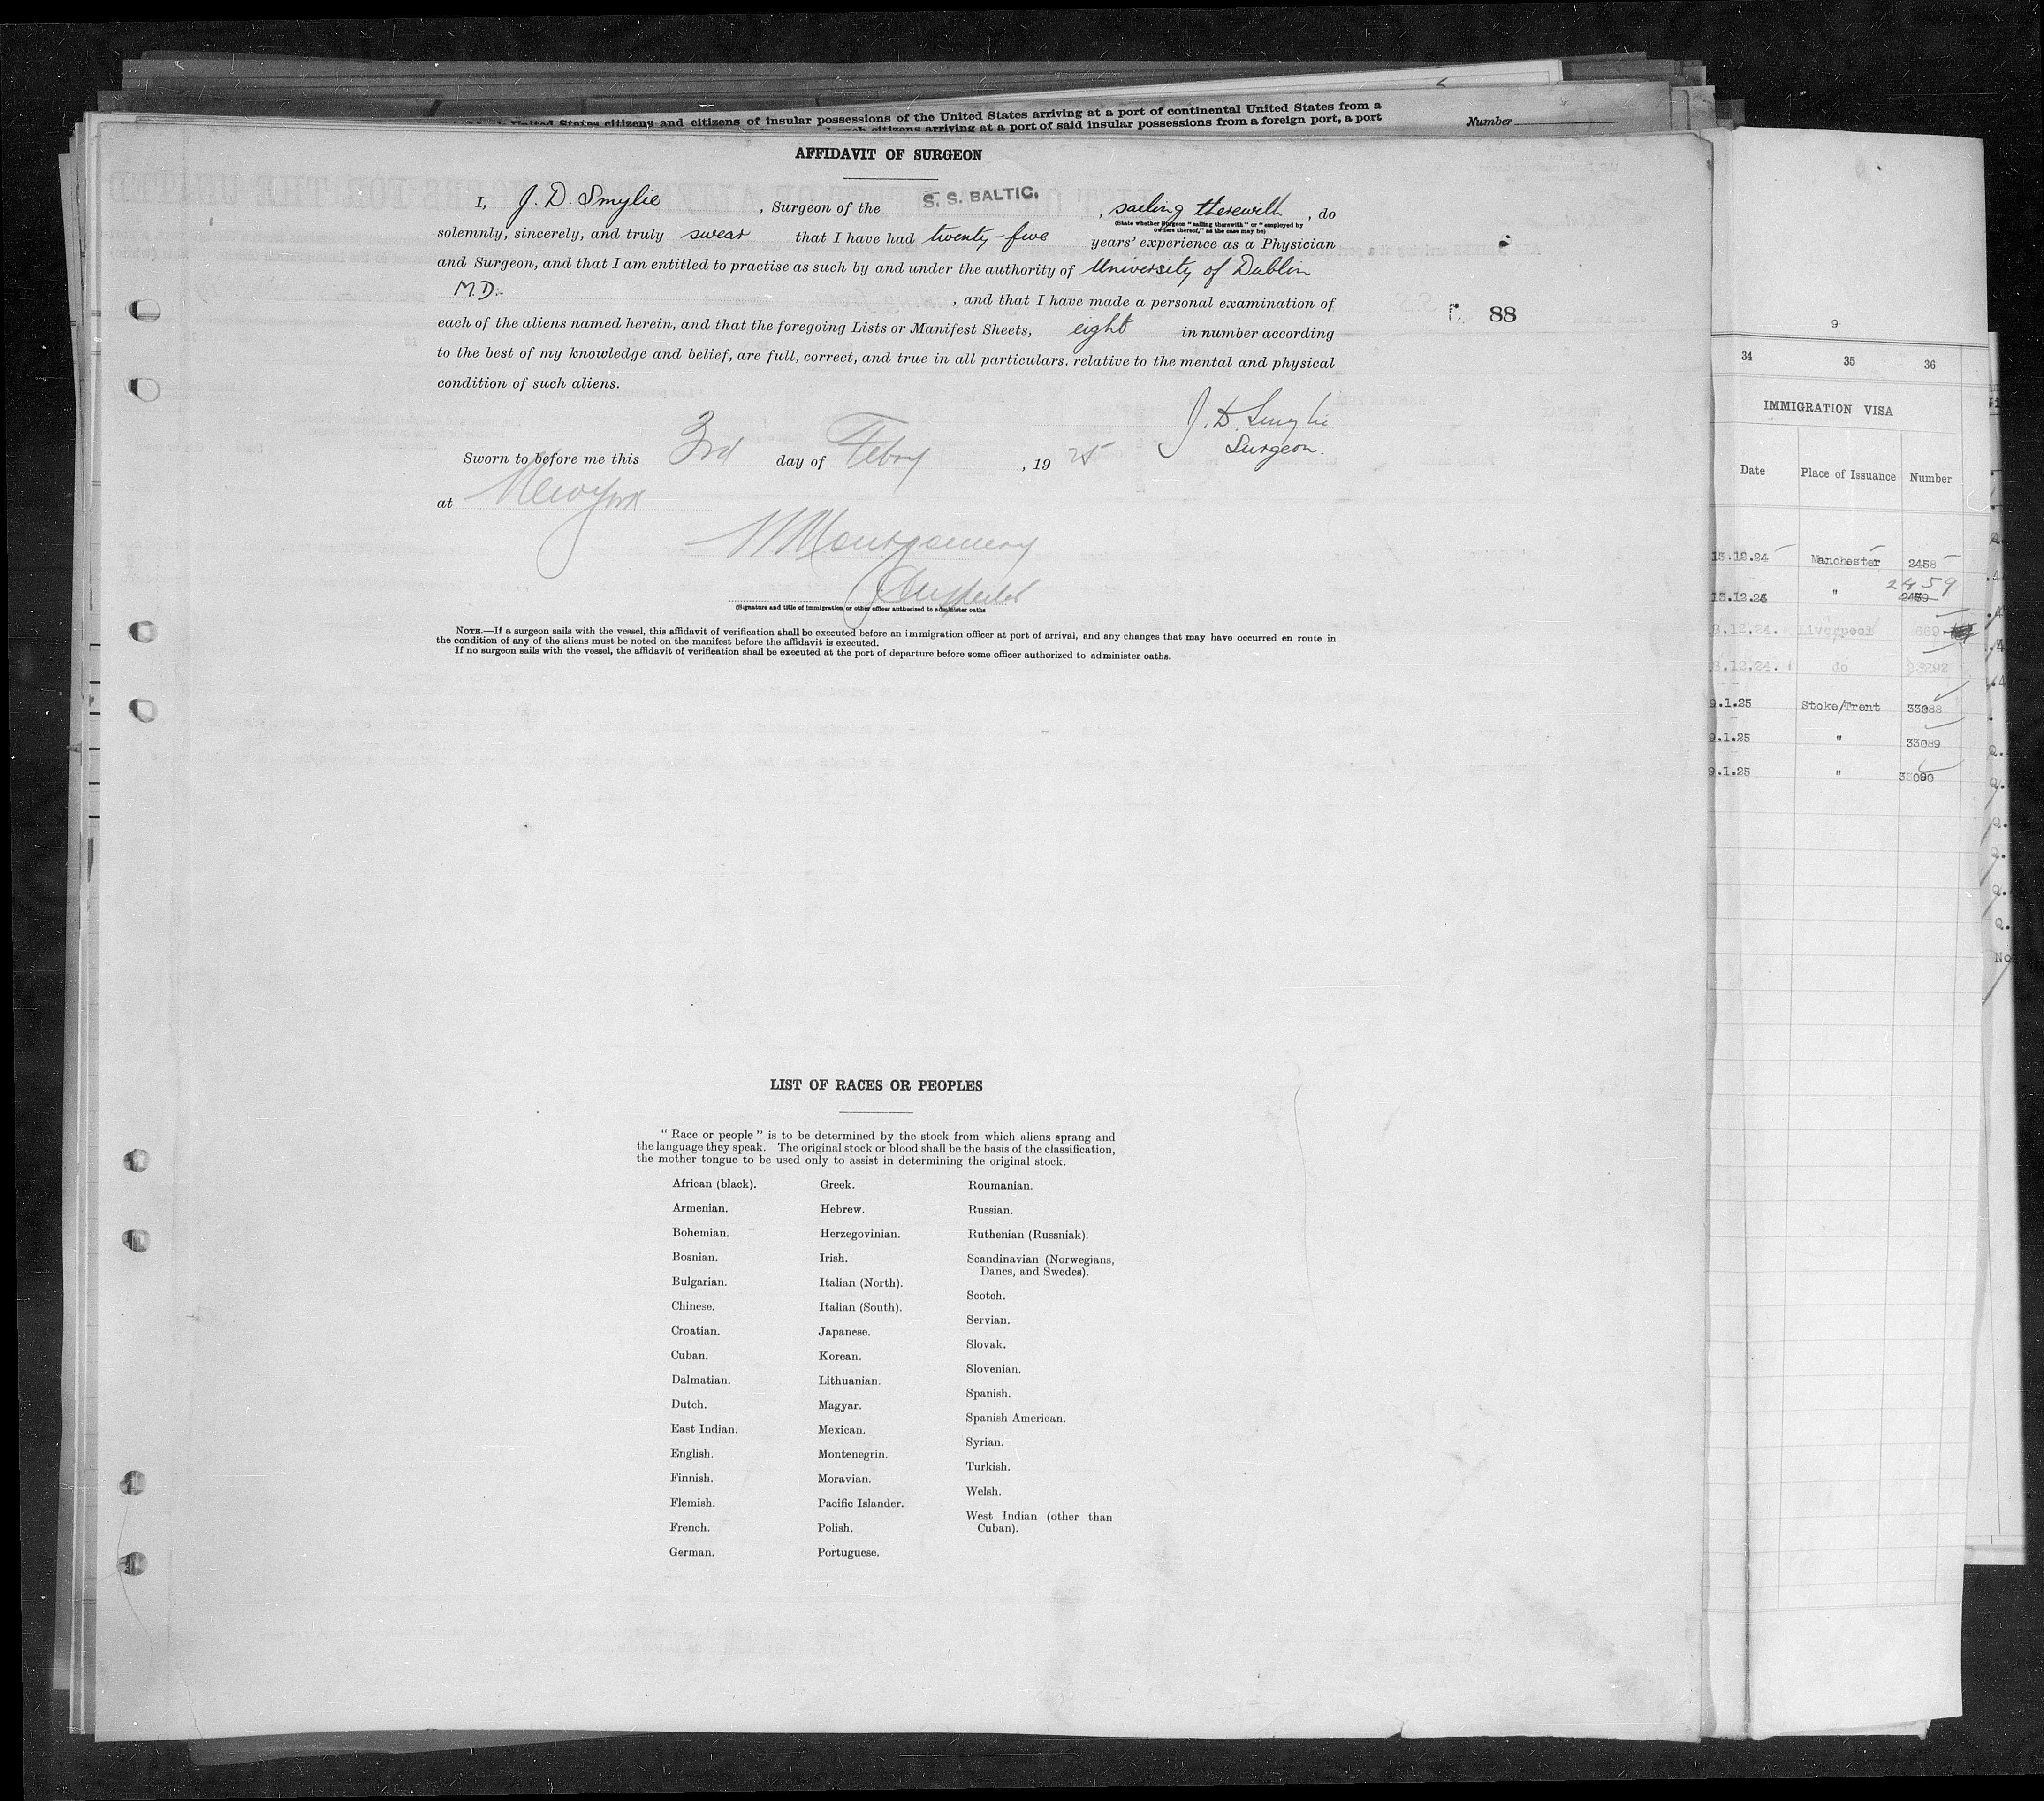 United States citizens and citizens of insular possessions of the United States arriving at a port of continental United States from a
such citizens arriving at a port of said insular possessions from a foreign port, a port
Number
AFFIDAVIT OF SURGEON
I, J. D. Smylie , Surgeon of the S. S. BALTIC. , sailing therewith , do
(State whether Surgeon "sailing therewith" or "employed by
owners thereof," as the case may be)
solemnly, sincerely, and truly swear that I have had twenty-five years' experience as a Physician
and Surgeon, and that I am entitled to practise as such by and under the authority of University of Dublin
M.D. , and that I have made a personal examination of
each of the aliens named herein, and that the foregoing Lists or Manifest Sheets, eight in number according
to the best of my knowledge and belief, are full, correct, and true in all particulars, relative to the mental and physical
condition of such aliens.
88
J. D. Smylie
Surgeon.
Sworn to before me this 3rd day of Febry , 19 25
at New York
Montgomery
(Signature and title of immigration or other officer authorized to administer oaths
NOTE.—If a surgeon sails with the vessel, this affidavit of verification shall be executed before an immigration officer at port of arrival, and any changes that may have occurred en route in
the condition of any of the aliens must be noted on the manifest before the affidavit is executed.
If no surgeon sails with the vessel, the affidavit of verification shall be executed at the port of departure before some officer authorized to administer oaths.
LIST OF RACES OR PEOPLES
"Race or people" is to be determined by the stock from which aliens sprang and
the language they speak. The original stock or blood shall be the basis of the classification,
the mother tongue to be used only to assist in determining the original stock.
African (black).
Armenian.
Bohemian.
Bosnian.
Bulgarian.
Chinese.
Croatian.
Cuban.
Dalmatian.
Dutch.
East Indian.
English.
Finnish.
Flemish.
French.
German.
Greek.
Hebrew.
Herzegovinian.
Irish.
Italian (North).
Italian (South).
Japanese.
Korean.
Lithuanian.
Magyar.
Mexican.
Montenegrin.
Moravian.
Pacific Islander.
Polish.
Portuguese.
Roumanian.
Russian.
Ruthenian (Russniak).
Scandinavian (Norwegians,
Danes, and Swedes).
Scotch.
Servian.
Slovak.
Slovenian.
Spanish.
Spanish American.
Syrian.
Turkish.
Welsh.
West Indian (other than
Cuban).
9
34 35 36
IMMIGRATION VISA
Date Place of Issuance Number
13.12.24 Manchester 2458
2459
13.12.24 " 2459
8.12.24. Liverpool 669
8.12.24. do 23292
9.1.25 Stoke/Trent 33088
9.1.25 " 33089
9.1.25 " 33090
No